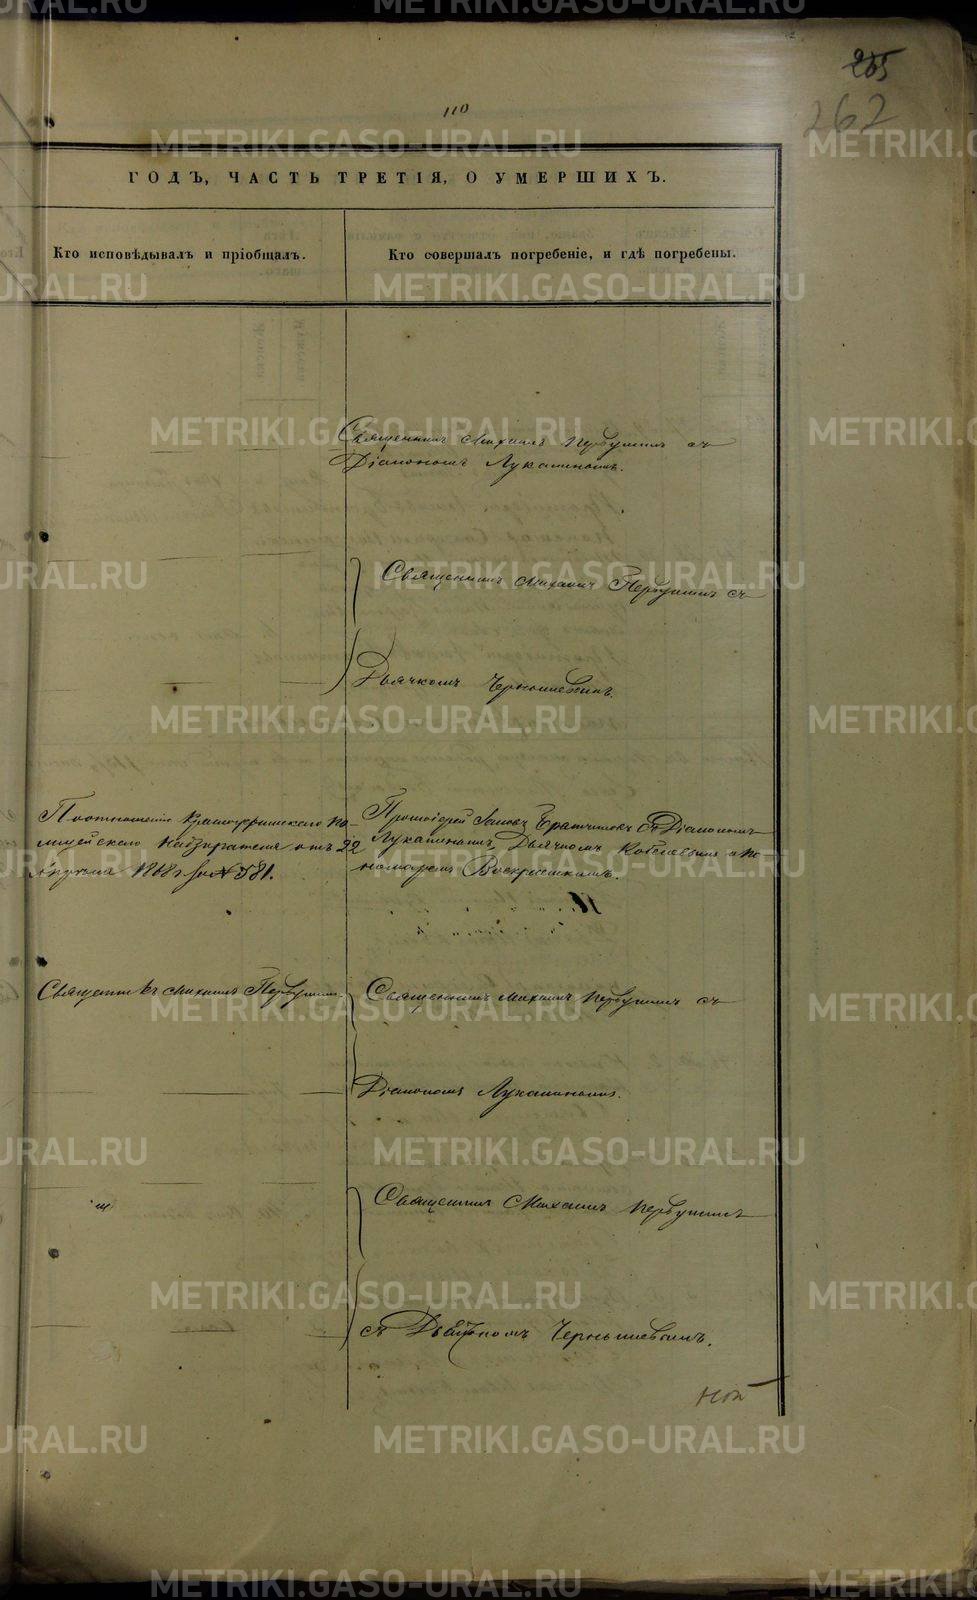 265
262
110
ГОДЪ, ЧАСТЬ ТРЕТІЯ, О УМЕРШИХЪ.
Кто исповѣдывалъ и пріобщалъ.
Кто совершалъ погребеніе, и гдѣ погребены.
Священникъ Михаилъ Первушинъ съ
Діакономъ Луканинымъ.
Священникъ Михаилъ Первушинъ съ
Дьячкомъ Чернышевымъ.
По отношенію Красноуфимскаго по-
лицейскаго Надзирателя отъ 22
Апрѣля 1868 г за № 581.
Протоіерей Іаковъ съ Діакономъ
Лукинымъ, Дьячкомъ и по-
номаремъ Воскресенскимъ.
Священникъ Михаилъ Первушинъ.
Священникъ Михаилъ Первушинъ съ
Діакономъ Лукиннымъ.
Священникъ Михаилъ Первушинъ
съ Дьячкомъ Чернышевымъ.
METRIKI.GASO-URAL.RU